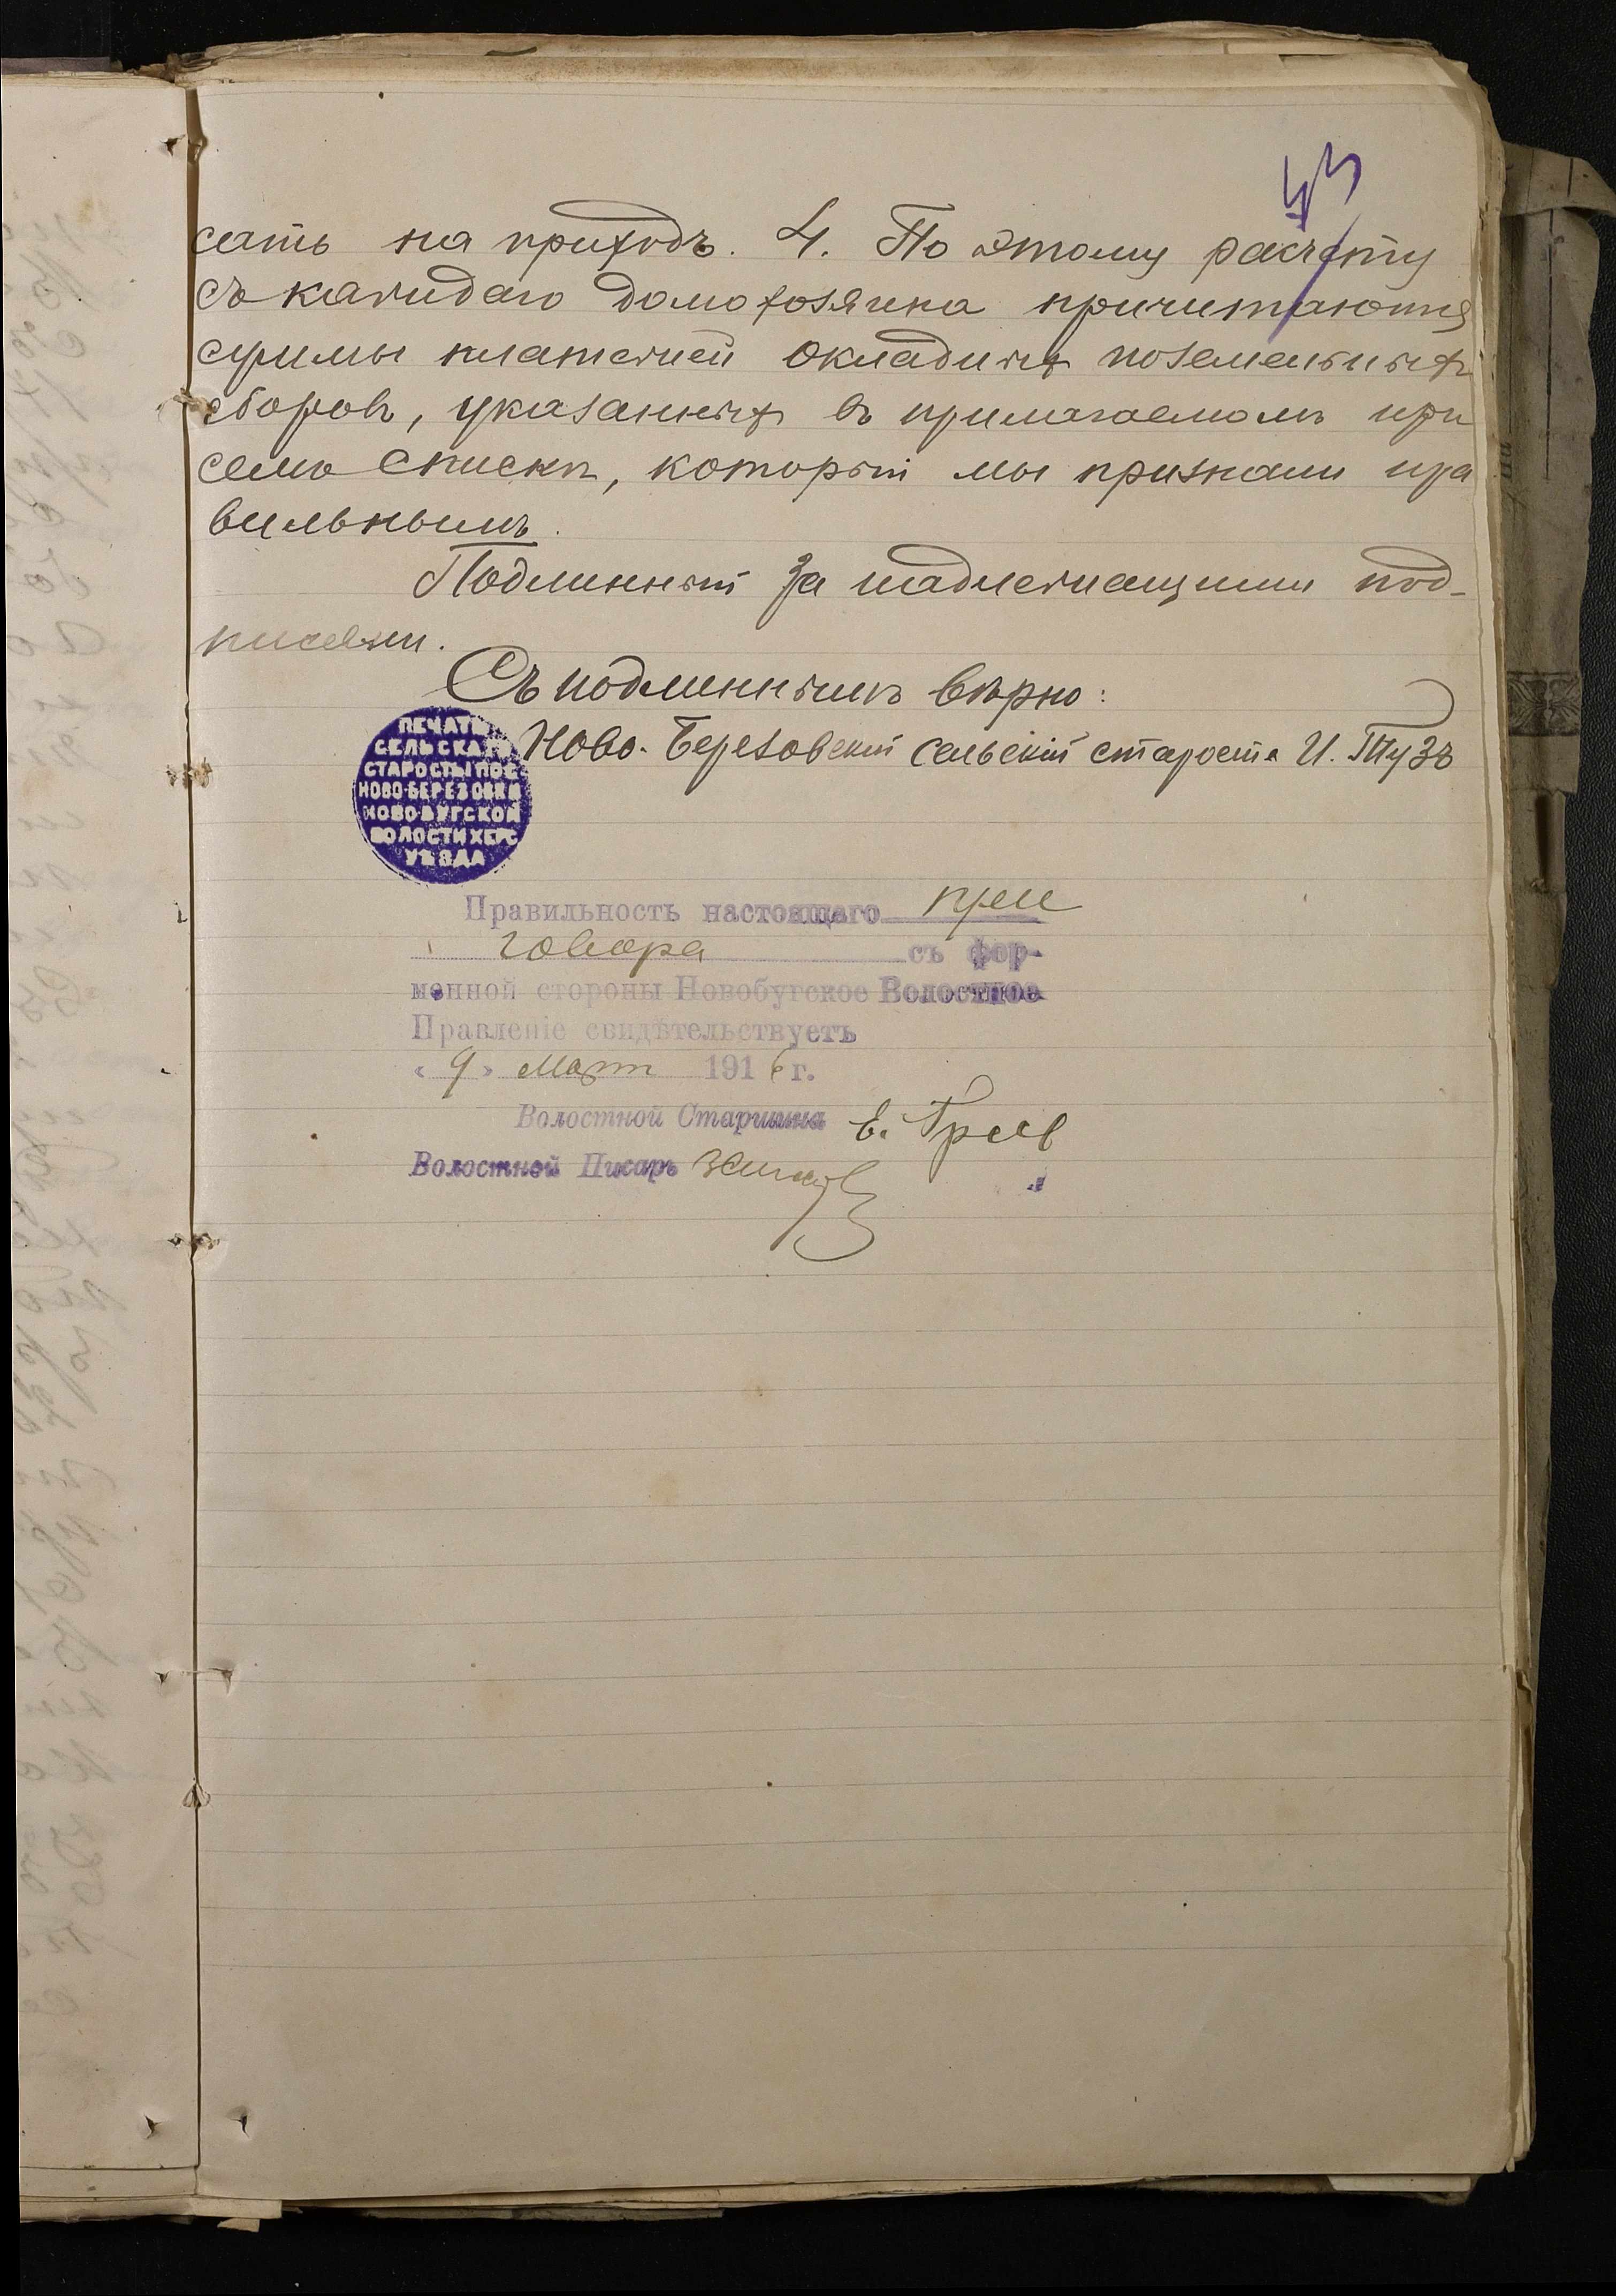 43
сать на приходъ. 4. По этому расчету
съ каждаго домохозяина причитаются
суммы платежей окладныхъ поземельныхъ
сборовъ, указанныхъ въ прилагаемомъ при
семъ спискѣ, который мы признали пра
вильнымъ.
Подлинный за надлежащими под-
писями.
Съ подлиннымъ вѣрно:
Ново-Березовскій сельскій староста И. Тузъ
ПЕЧАТЬ
СЕЛЬСКАГО
СТАРОСТЫ ПОС
НОВО-БЕРЕЗОВКИ
НОВО-БУГСКОЙ
ВОЛОСТИ ХЕРС
УѢЗДА
Правильность настоящаго при
говора съ фор-
менной стороны Новобугское Волостное
Правленіе свидѣтельствуетъ
« 9 » март 1916 г.
Волостной Старшина Е.
Волостной Писарь